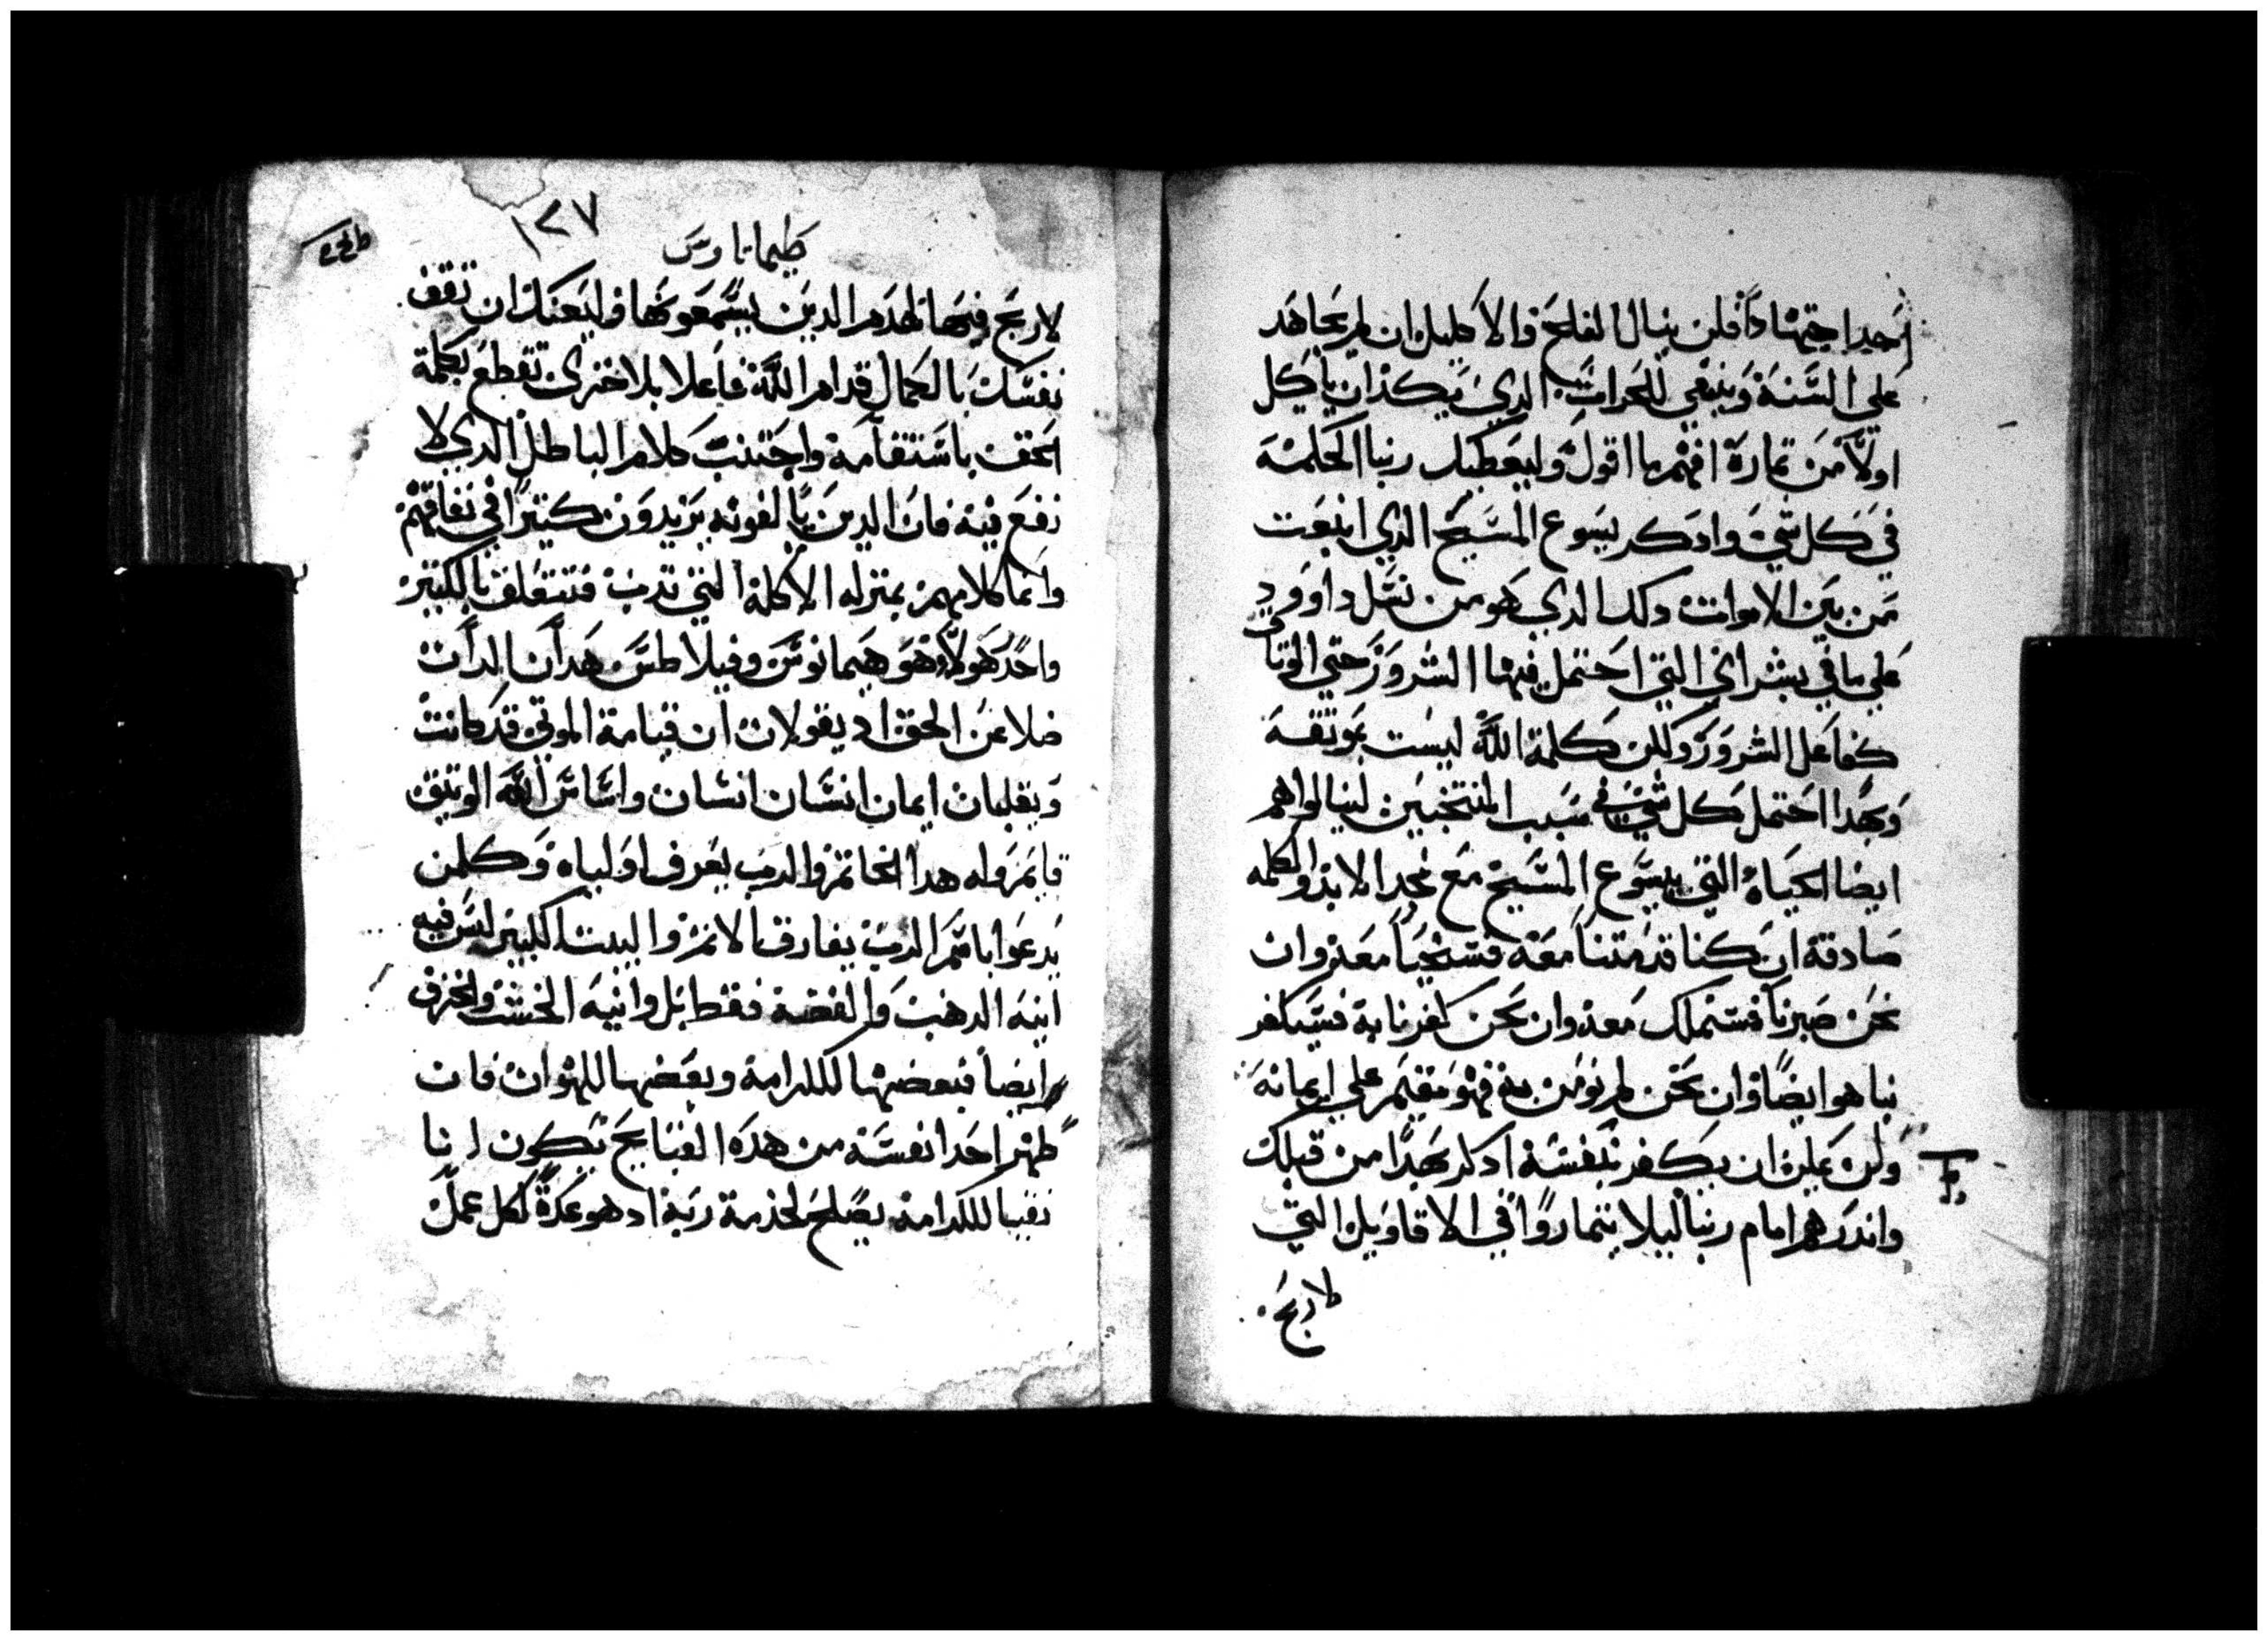 احد اجتهادًا فلن ينال الفلح والاكليل ان لم يجاهد
علي السنة وينبغي للحرات الدي يكد ان ياكل
اولًا من تمارة افهم ما اقول وليعطيك ربنا الحكمة
في كل شي وادكر يسوع المسيح الدي انبعت
من بين الاموات دلك الدي هو من نسل داوود
علي ما في بشراي التي احتمل فيها الشرور حتي الوتاق
كفاعل الشرور ولكن كلمة الله ليست بموتقة
وبهدا احتمل كل شي في سبب المنتخبين لينالوا هم
ايضا الحياة التي بيسوع المسيح مع مجد الابد والكلمه
صادقة ان كنا قد متنا معه فسنحيا معه وان
نحن صبرنا فسنملك معه وان نحن كفرنا به فسيكفر
بنا هو ايضًا وان نحن لم نومن به فهو مقيم علي ايمانه
ولن عليه ان يكفر بنفسه ادكر بهدا من قبلك
واندرهم امام ربنا ليلا يتماروا في الاقاويل التي
لا ربح
طيماتاوس
١٢٧
لا ربح فيها لهدم الدين يسمعونها وليعنك ان تقف
نفسك بالكمال قدام الله فاعلا بلا خزي تقطع بكلمة
الحق باستقامة واجتنب كلام الباطل الدي لا
نفع فيه فان الدين يالفونه يزيدون كتيرا في نفاقهم
وانما كلامهم بمنزله الاكلة التي تدب فتتعلق بالكتير
واحد هولاء هو هيمانوس وفيلاطس هدان الدان
ضلا عن الحق اد يقولان ان قيامة الموتي قد كانت
ويقلبان ايمان انسان انسان واساس الله الوتيق
قايم وله هدا الخاتم والرب يعرف اولياه وكلمن
يدعوا باسم الرب يفارق الاتم والبيت الكبير ليس فيه
انية الدهب والفضة فقط بل وانية الخشب والخزف
ايضا فبعضها للكرامة وبعضها للهوان فان
طهر احدا نفسه من هده القبايح يكون انا
نقيا للكرامة يصلح لخدمة ربه اد هو عدة لكل عمل